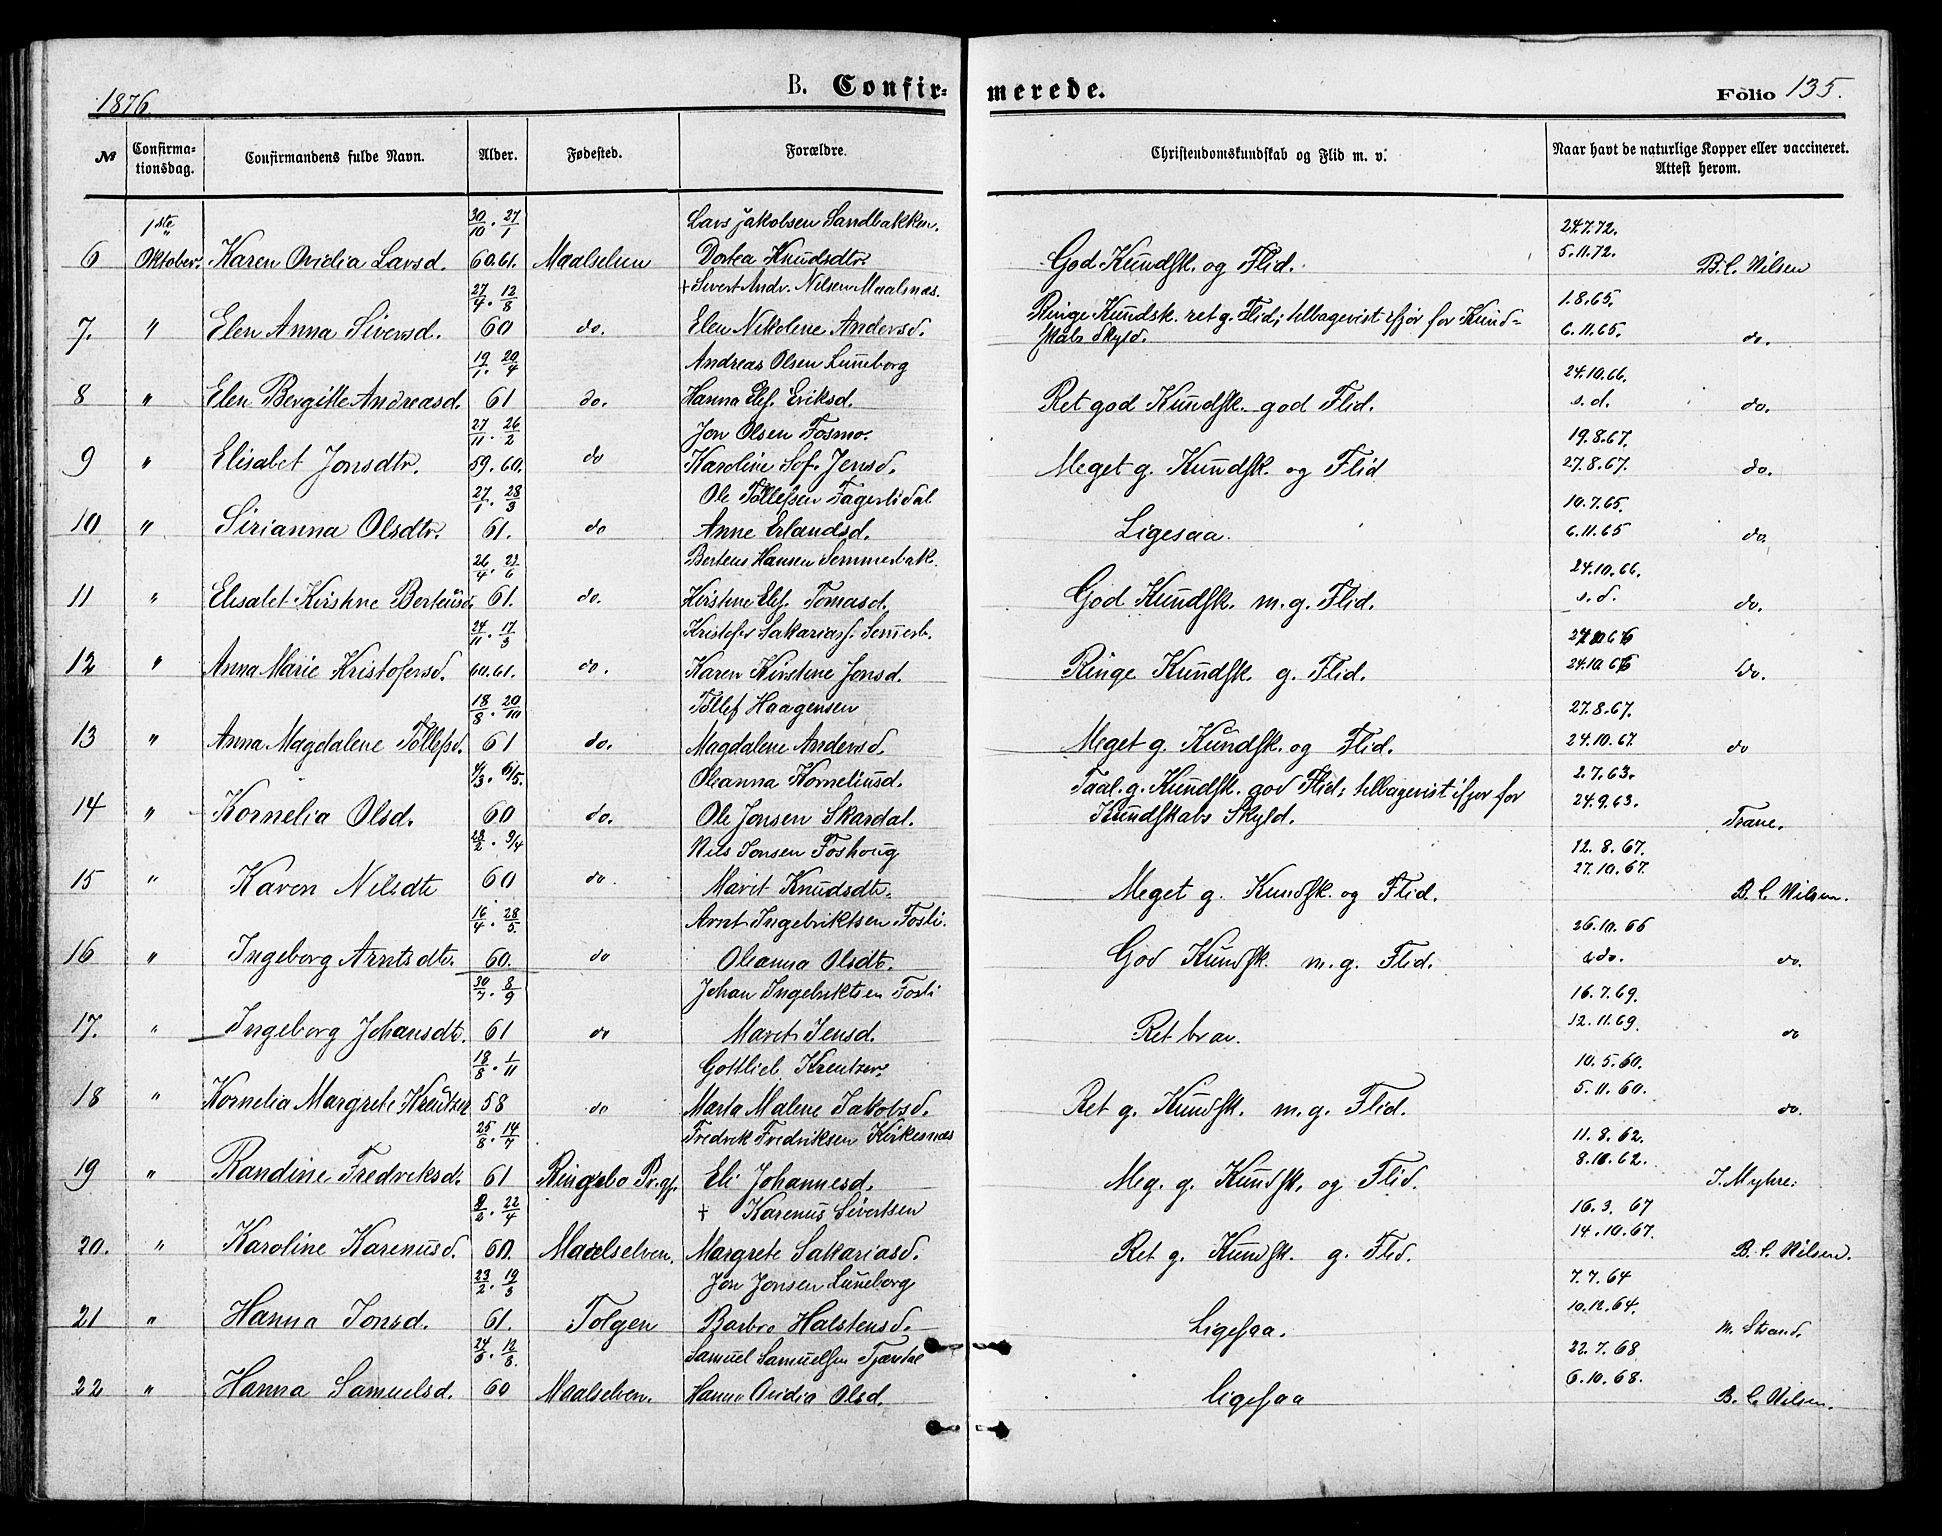 1876.
B. Confir-
merede.
Folio 135.
№
Confirma-
tionsdag.
Confirmandens fulde Navn.
Alder.
Fødested.
Forældre.
Christendomskundskab og Flid m. v.
Naar havt de naturlige Kopper eller vaccineret.
Attest herom.
1ste 30/10 . 27/1 Lars Jakobsen Sandbakken. 24.7.72.
6 Oktober. Karen Ovidia Larsd. 60.61. Maalselven Dortea Knudsdtr. God Kundsk. og Flid. 5.11.72. B.C. Nilsen
27/4 . 12/8 + Sivert Andr. Nilsen Maalsnæs. 1.8.65.
7. " Elen Anna Siversd. 60 do. Elen Nikoline Andersd. Ringe Kundsk. ret g. Flid; tilbagevist ifjor for Kund-
skabs Skyld. 6.11.65. do.
19/1 . 20/4 Andreas Olsen Luneborg 24.10.66.
8 " Elen Bergitte Andreasd. 61 do. Hanna Elis. Eriksd. Ret god Kundsk. god Flid. s.d. do.
27/11 . 26/2 Jon Olsen Fosmo. 19.8.67.
9 " Elisabet Jonsdtr. 59.60. do Karoline Sof. Jensd. Meget g. Kundsk. og Flid 27.8.67. do.
27/1 . 28/3 Ole Tollefsen Fagerlidal 10.7.65.
10 " Sirianna Olsdtr. 61. do Anne Erlandsd. Ligesaa. 6.11.65 do.
26/4 . 23/6 Berteus Hansen Semmerbak. 24.10.66.
11 " Elisabet Kirstine Berteusd. 61. do. Kirstine Elis. Tomasd. God Kundsk. m.g. Flid. s.d. do.
24/11 . 17/3 Kristofer Sakariass. Semerb.
12 " Anna Marie Kristofersd. 60.61. do. Karen Kirstine Jonsd. Ringe Kundsk. g. Flid. 24.10.66 do.
18/8 . 20/10 Tollef Haagensen 27.8.67.
13 " Anna Magdalene Tollefsd. 61 do. Magdalene Andersd. Meget g. Kundsk. og Flid. 24.10.67. do
4/3. 6/5. Oleanna Korneliusd. 2.7.63.
14 " Kornelia Olsd. 60 do. Ole Jonsen Skardal. Taal. g. Kundsk. god Flid; tilbagevist ifjor for
Kundskabs Skyld. 24.9.63. Trane.
28/2 . 9/4 Nils Jonsen Foshoug 12.8.67.
15 " Karen Nilsdtr 60 do Marit Knudsdtr. Meget g. Kundsk. og Flid. 27.10.67. B.C. Nilsen.
16/4 . 28/5 Arnt Ingebriktsen Fosli. 26.10.66
16 " Ingeborg Arntsdtr. 60. do Oleanna Olsdtr. God Kundsk. m.g. Flid. do. do.
30/7 . 8/9 Johan Ingebriktsen Fosli 16.7.69.
17. " Ingeborg Johansdtr. 61 do Maret Jensd. Ret brav. 12.11.69. do
18/8 . 1/11 Gottlieb Kreutzer. 10.5.60.
18 " Kornelia Margrete Kreutzer 58 do Marta Malene Jakobsd. Ret g. Kundsk. m.g. Flid. 5.11.60. do.
25/8 . 14/7 Fredrik Fredriksen Kirkesnæs 11.8.62.
19 " Randine Fredriksd. 61 Ringebo Prgj. Eli Johannesd. Meg. g. Kundsk. og Flid. 8.10.62. J. Myhre.
2/2 . 22/4 + Karenus Sivertsen 16.3.67
20. " Karoline Karenusd. 60. Maalselven. Margrete Sakariasd. Ret g. Kundsk. g. Flid. 14.10.67. B.C. Nilsen.
23/2 . 19/3 Jon Jonsen Luneborg 7.7.64
21 " Hanna Jonsd. 61. Tolgen Barbro Halstensd. Ligesaa. 10.12.64. M. Strand.
24/6 . 12/8 Samuel Samuelsen 22.7.68
22 " Hanna Samuelsd. 60 Maalselven. Hanna Ovidia Olsd. Ligesaa 6.10.68. B.C. Nilsen.